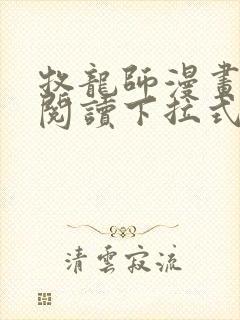 牧龍師漫畫
閱讀下拉式
清雲寂流